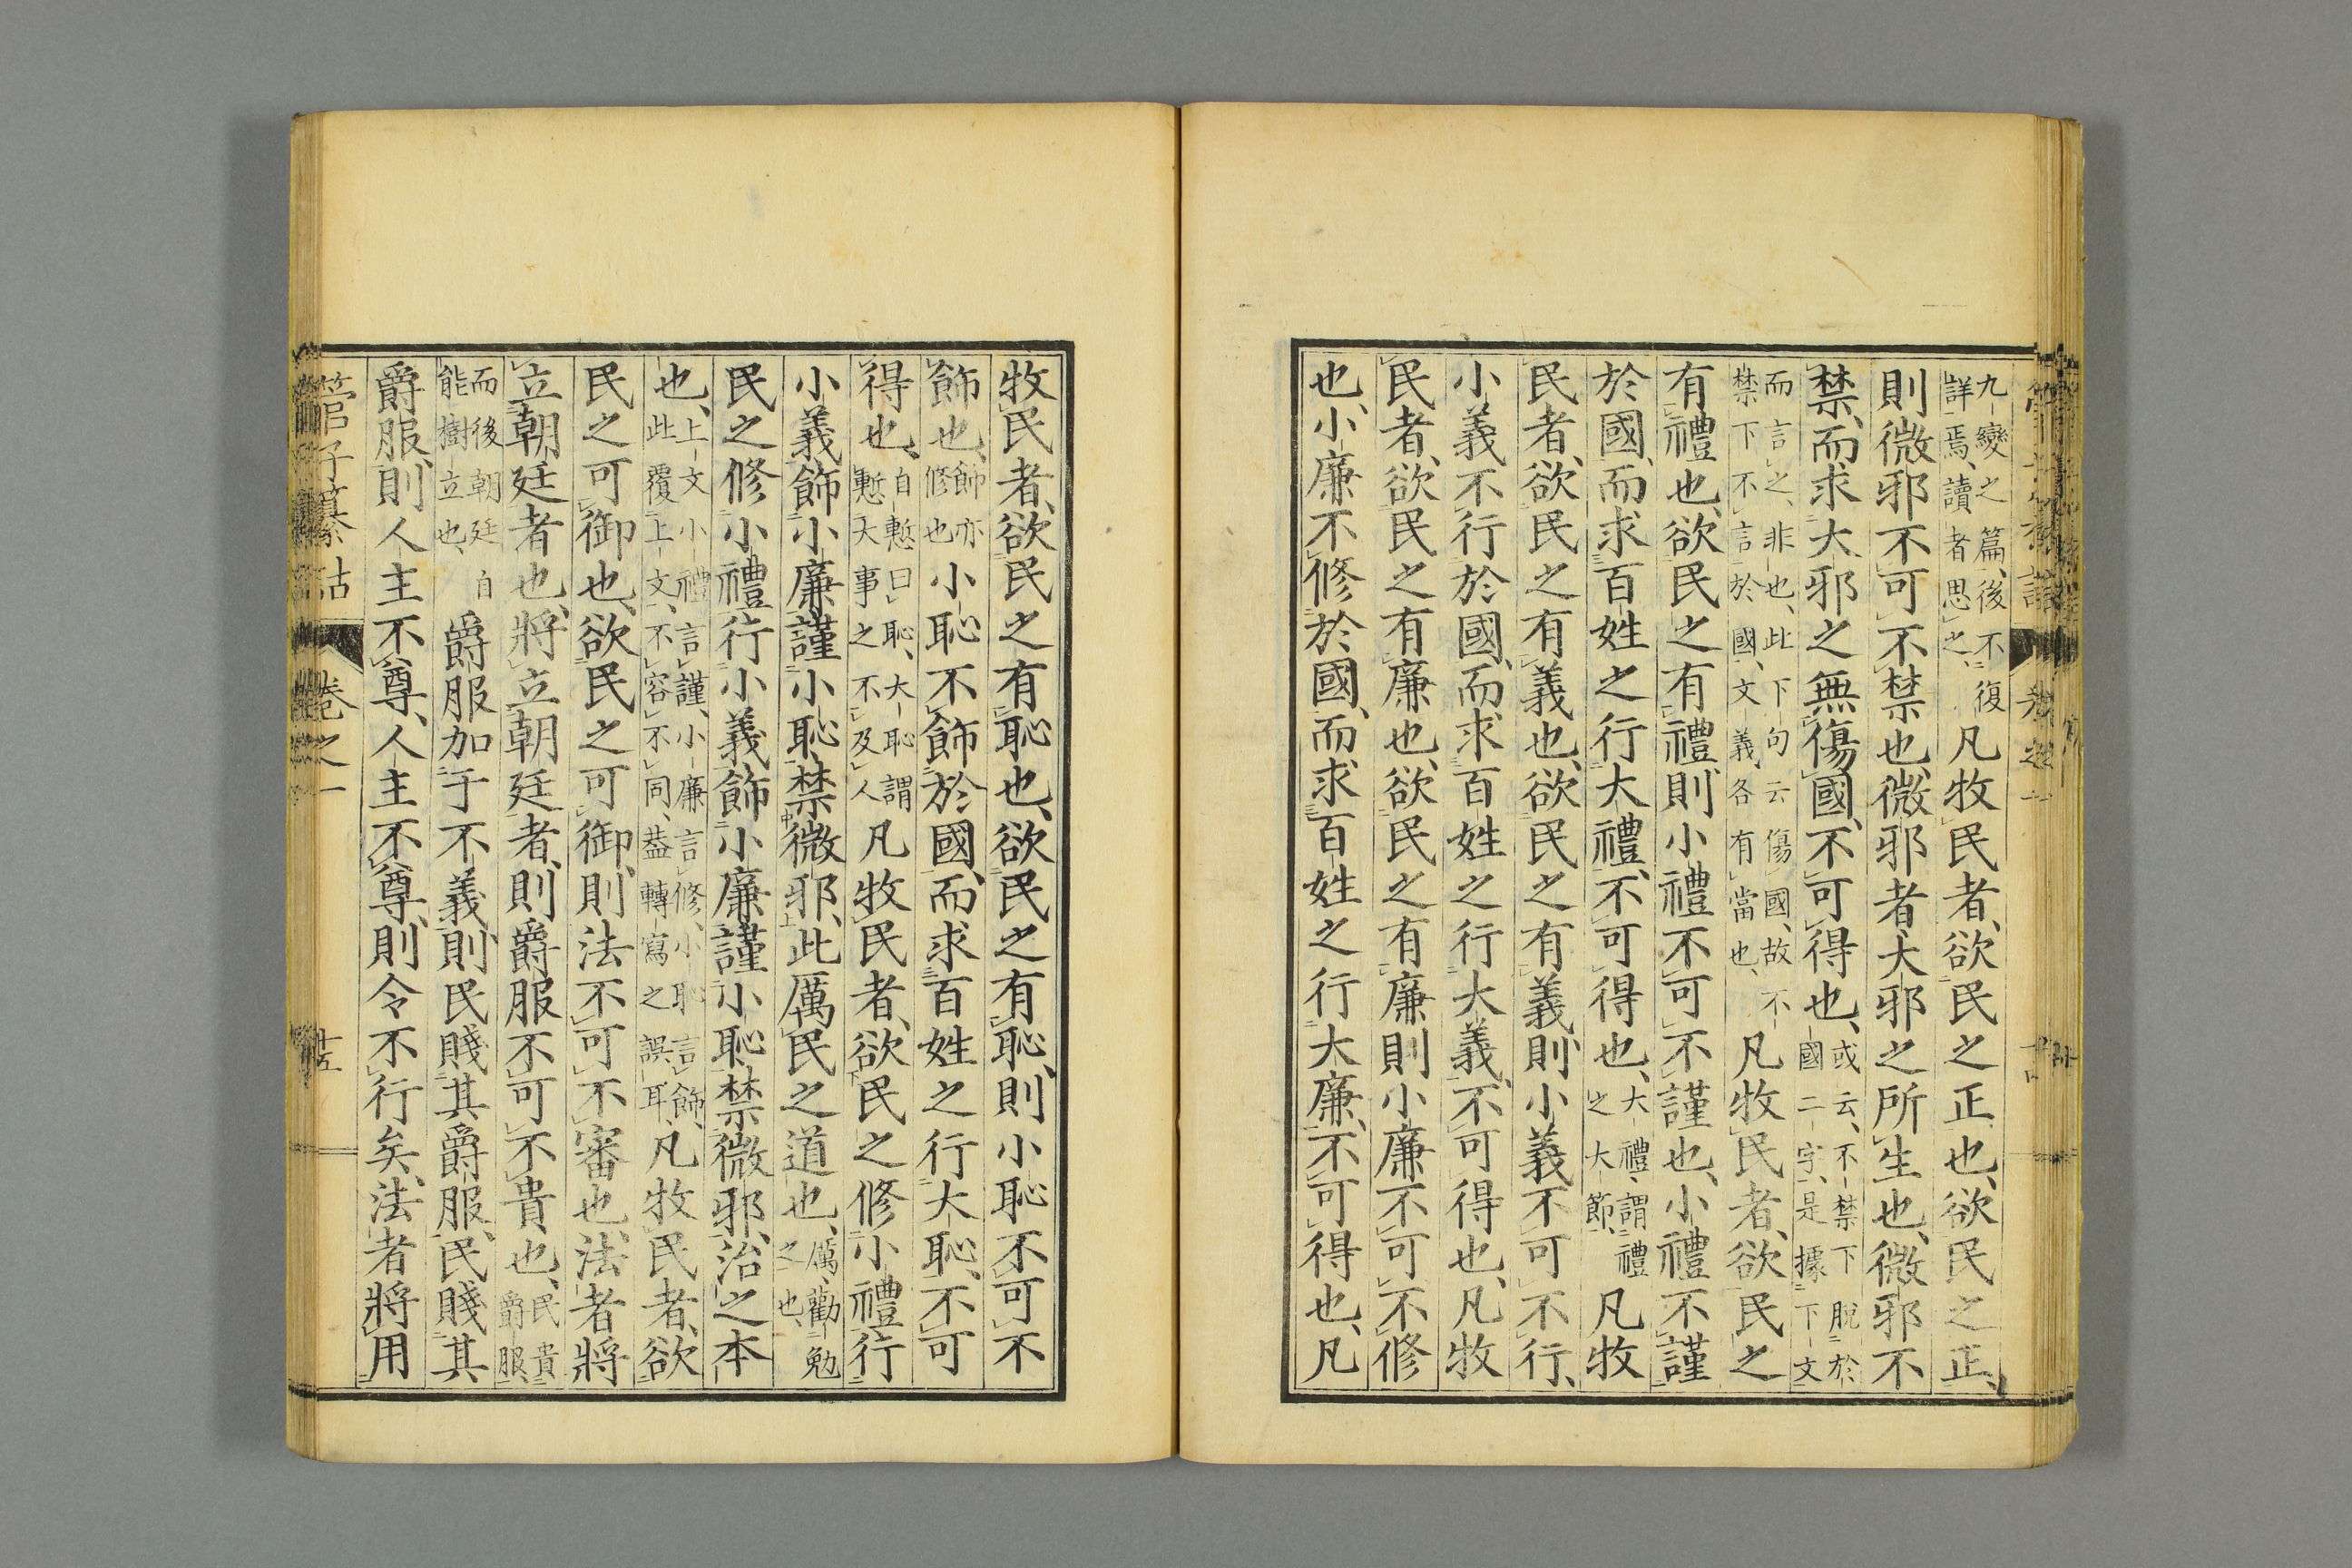 九變之篇、後不復詳焉、讀者思之、凡牧民者、欲民之正也、欲民之正、
則微邪不可不禁也、微邪者、大邪之所生也、微邪不
禁、而求大邪之無傷國、不可得也、或云、不禁下脫於國二字、是據下文
而言之、非也、此下句云傷國、故不禁下不言於國、文義各有當也、凡牧民者、欲民之
有禮也、欲民之有禮、則小禮不可不謹也、小禮不謹
於國、而求百姓之行大禮、不可得也、大禮、謂禮之大節、凡牧
民者、欲民之有義也、欲民之有義、則小義不可不行、
小義不行於國、而求百姓之行大義、不可得也、凡牧
民者、欲民之有廉也、欲民之有廉、則小廉不可不修
也、小廉不修於國、而求百姓之行大廉、不可得也、凡
牧民者、欲民之有恥也、欲民之有恥、則小恥不可不
飾也、飾亦修也小恥不飾於國、而求百姓之行大恥、不可
得也、自慙曰恥、大恥謂慙大事之不及人凡牧民者、欲民之修小禮、行
小義、飾小廉、謹小恥、禁微邪、此厲民之道也、厲、勸勉之也、
民之修小禮、行小義、飾小廉、謹小恥、禁微邪、治之本
也、上文小禮言謹、小廉言修、小恥言飾、此覆上文、不容不同、葢轉寫之誤耳、凡牧民者、欲
民之可御也、欲民之可御、則法不可不審也、法者、將
立朝廷者也、將立朝廷者、則爵服不可不貴也、民貴爵服、
而後朝廷自能樹立也、爵服加于不義、則民賤其爵服、民賤其
爵服、則人主不尊、人主不尊、則令不行矣、法者、將用
管子纂詁 卷之一 十五